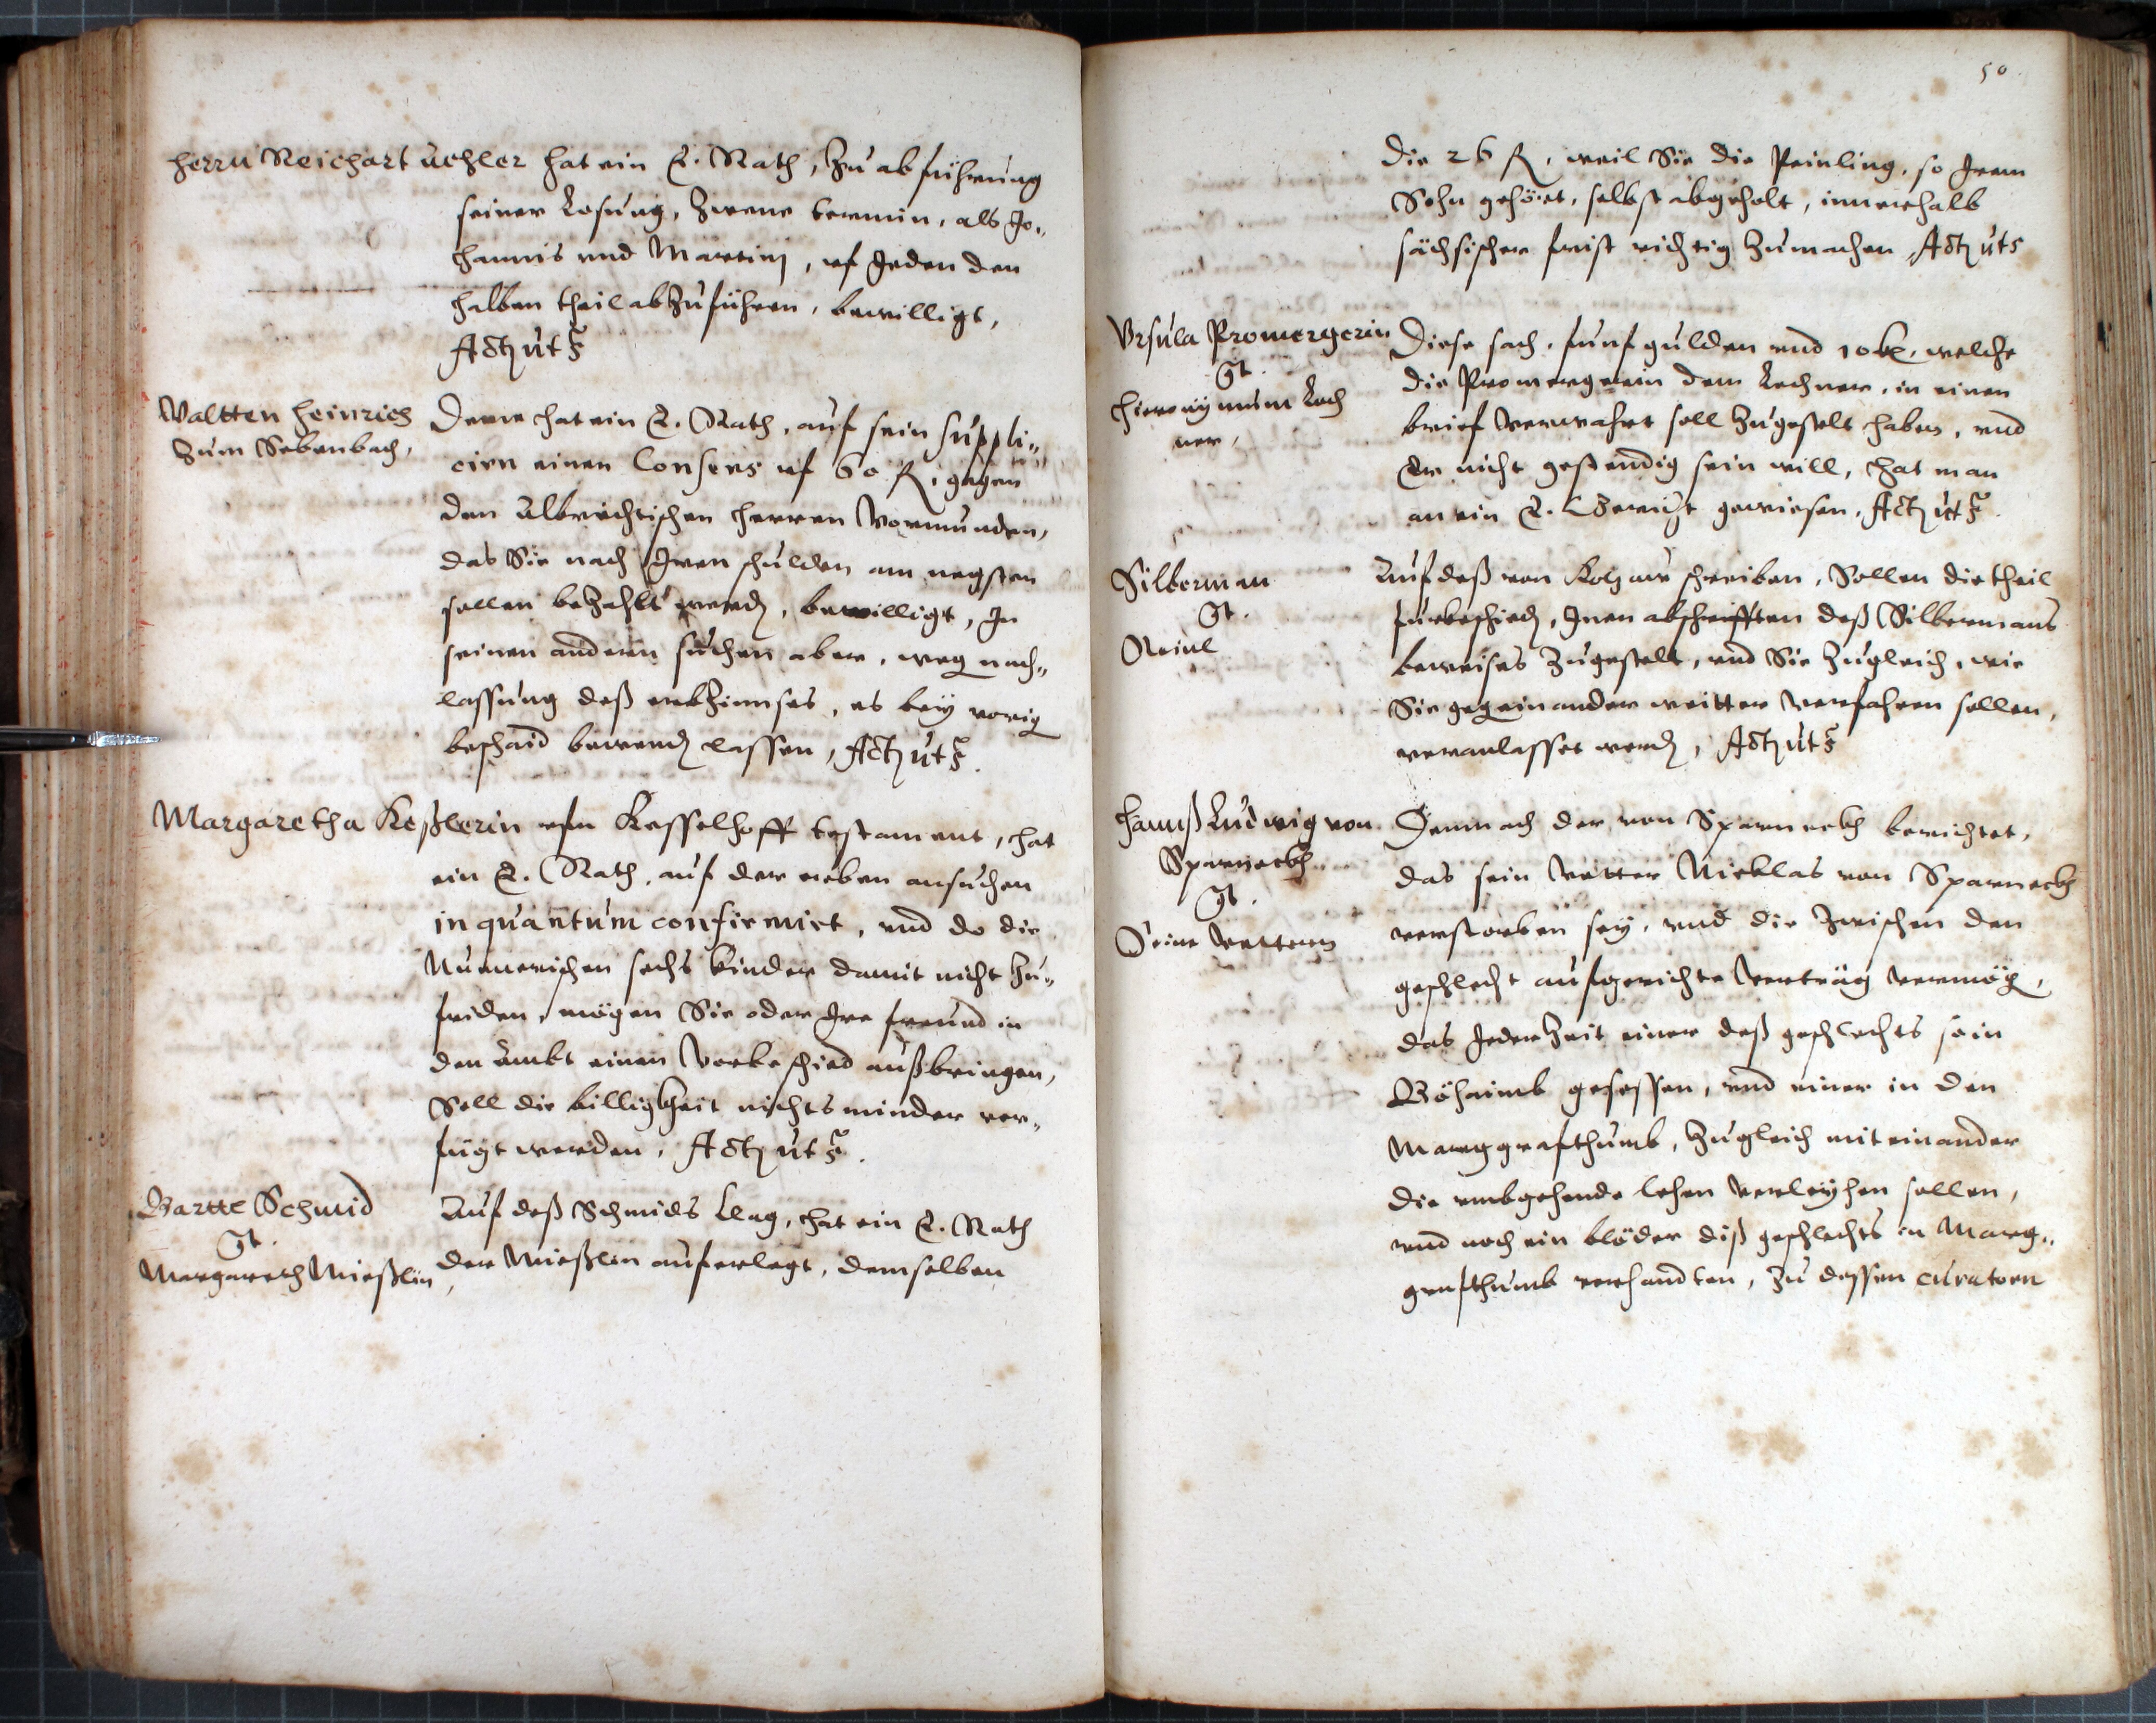 Herrn Reichart Uehler hat ein E. Rath, Zu abführung
seiner Losung, Zwene termin, als Jo„
hannis vnd Martinj, vf Jeden den
halben theil abZuführen, bewilligt,
Act. ut s.
Valtten Heinrich
Zum Sebenbach,
Deme hat ein E. Rath, auf sein suppli„
cirn einen Consens vf 60 fl. gegen
den Albrechtischen herren Vormunden,
das Sie nach Iren schulden am negsten
sollen beZahlt werden, bewilligt, In
seinen andern suchen aber, weg nach„
lassung deß erbZinnses, es bey vorig
beschaid bewenden lassen, Act. ut s.
Margaretha Keßlerin vfm Kesselhoff testament, hat
ein E. Rath, auf der erben ansuchen
in quantum confirmirt, vnd do die
sechs kinder damit nicht Zu„
friden, mögen Sie oder Ire freund in
den Ambt einen Vorbeschied außbringen,
Soll die billigkheit nichts minder ver„
fügt werden, Act. ut s.
Bartte Schmid
gt.
Margareth Mießlin,
Auf deß Schmids Clag, hat ein E. Rath
der Mießlin auferlegt, demselben
50.
die 26 fl. weil Sie die Peinling, so Irem
Sohn gehöret, selbst abgeholt, innerhalb
sächsischer frist richtig Zumachen, Act. ut s
Vrsula Promergerin
gt.
Hieronymum Lech
ner,
Diese sach, funf gulden vnd 10 bz. welche
die Promergerin dem Lechner, in einen
brief verwahrt soll Zugestelt haben, vnd
Er nicht gestendig sein will, hat man
an ein E. Gericht gewiesen. Act. ut s.
Silberman
gt.
Reinl
Auf deß von Kotzaus schreiben, Sollen die theil
fürbeschieden, Inen abschrifften deß Silbermans
beweises Zugestelt, vnd Sie Zugleich, wie
Sie gegeneinander weitter verfahren sollen,
veranlasset werden, Act. ut s
Hannß Ludwig von
Sparneckh
gt.
Seine Vettern
Demnach der von Sparneckh berichtet,
das sein Vetter Nicklas von Sparneckh
verstorben sey, vnd die Zwischen den
geschlecht aufgerichte Verträg vermög,
das JederZeit einer deß geschlechts sein
Böhaimb gesessen, vnd einer in den
Marggrafthumb, Zugleich mit einander
die vmbgehende lehen verleyhen sollen,
vnd noch ein blöder diß geschlechts in Marg„
grafthumb verhandten, Zu dessen curatorn